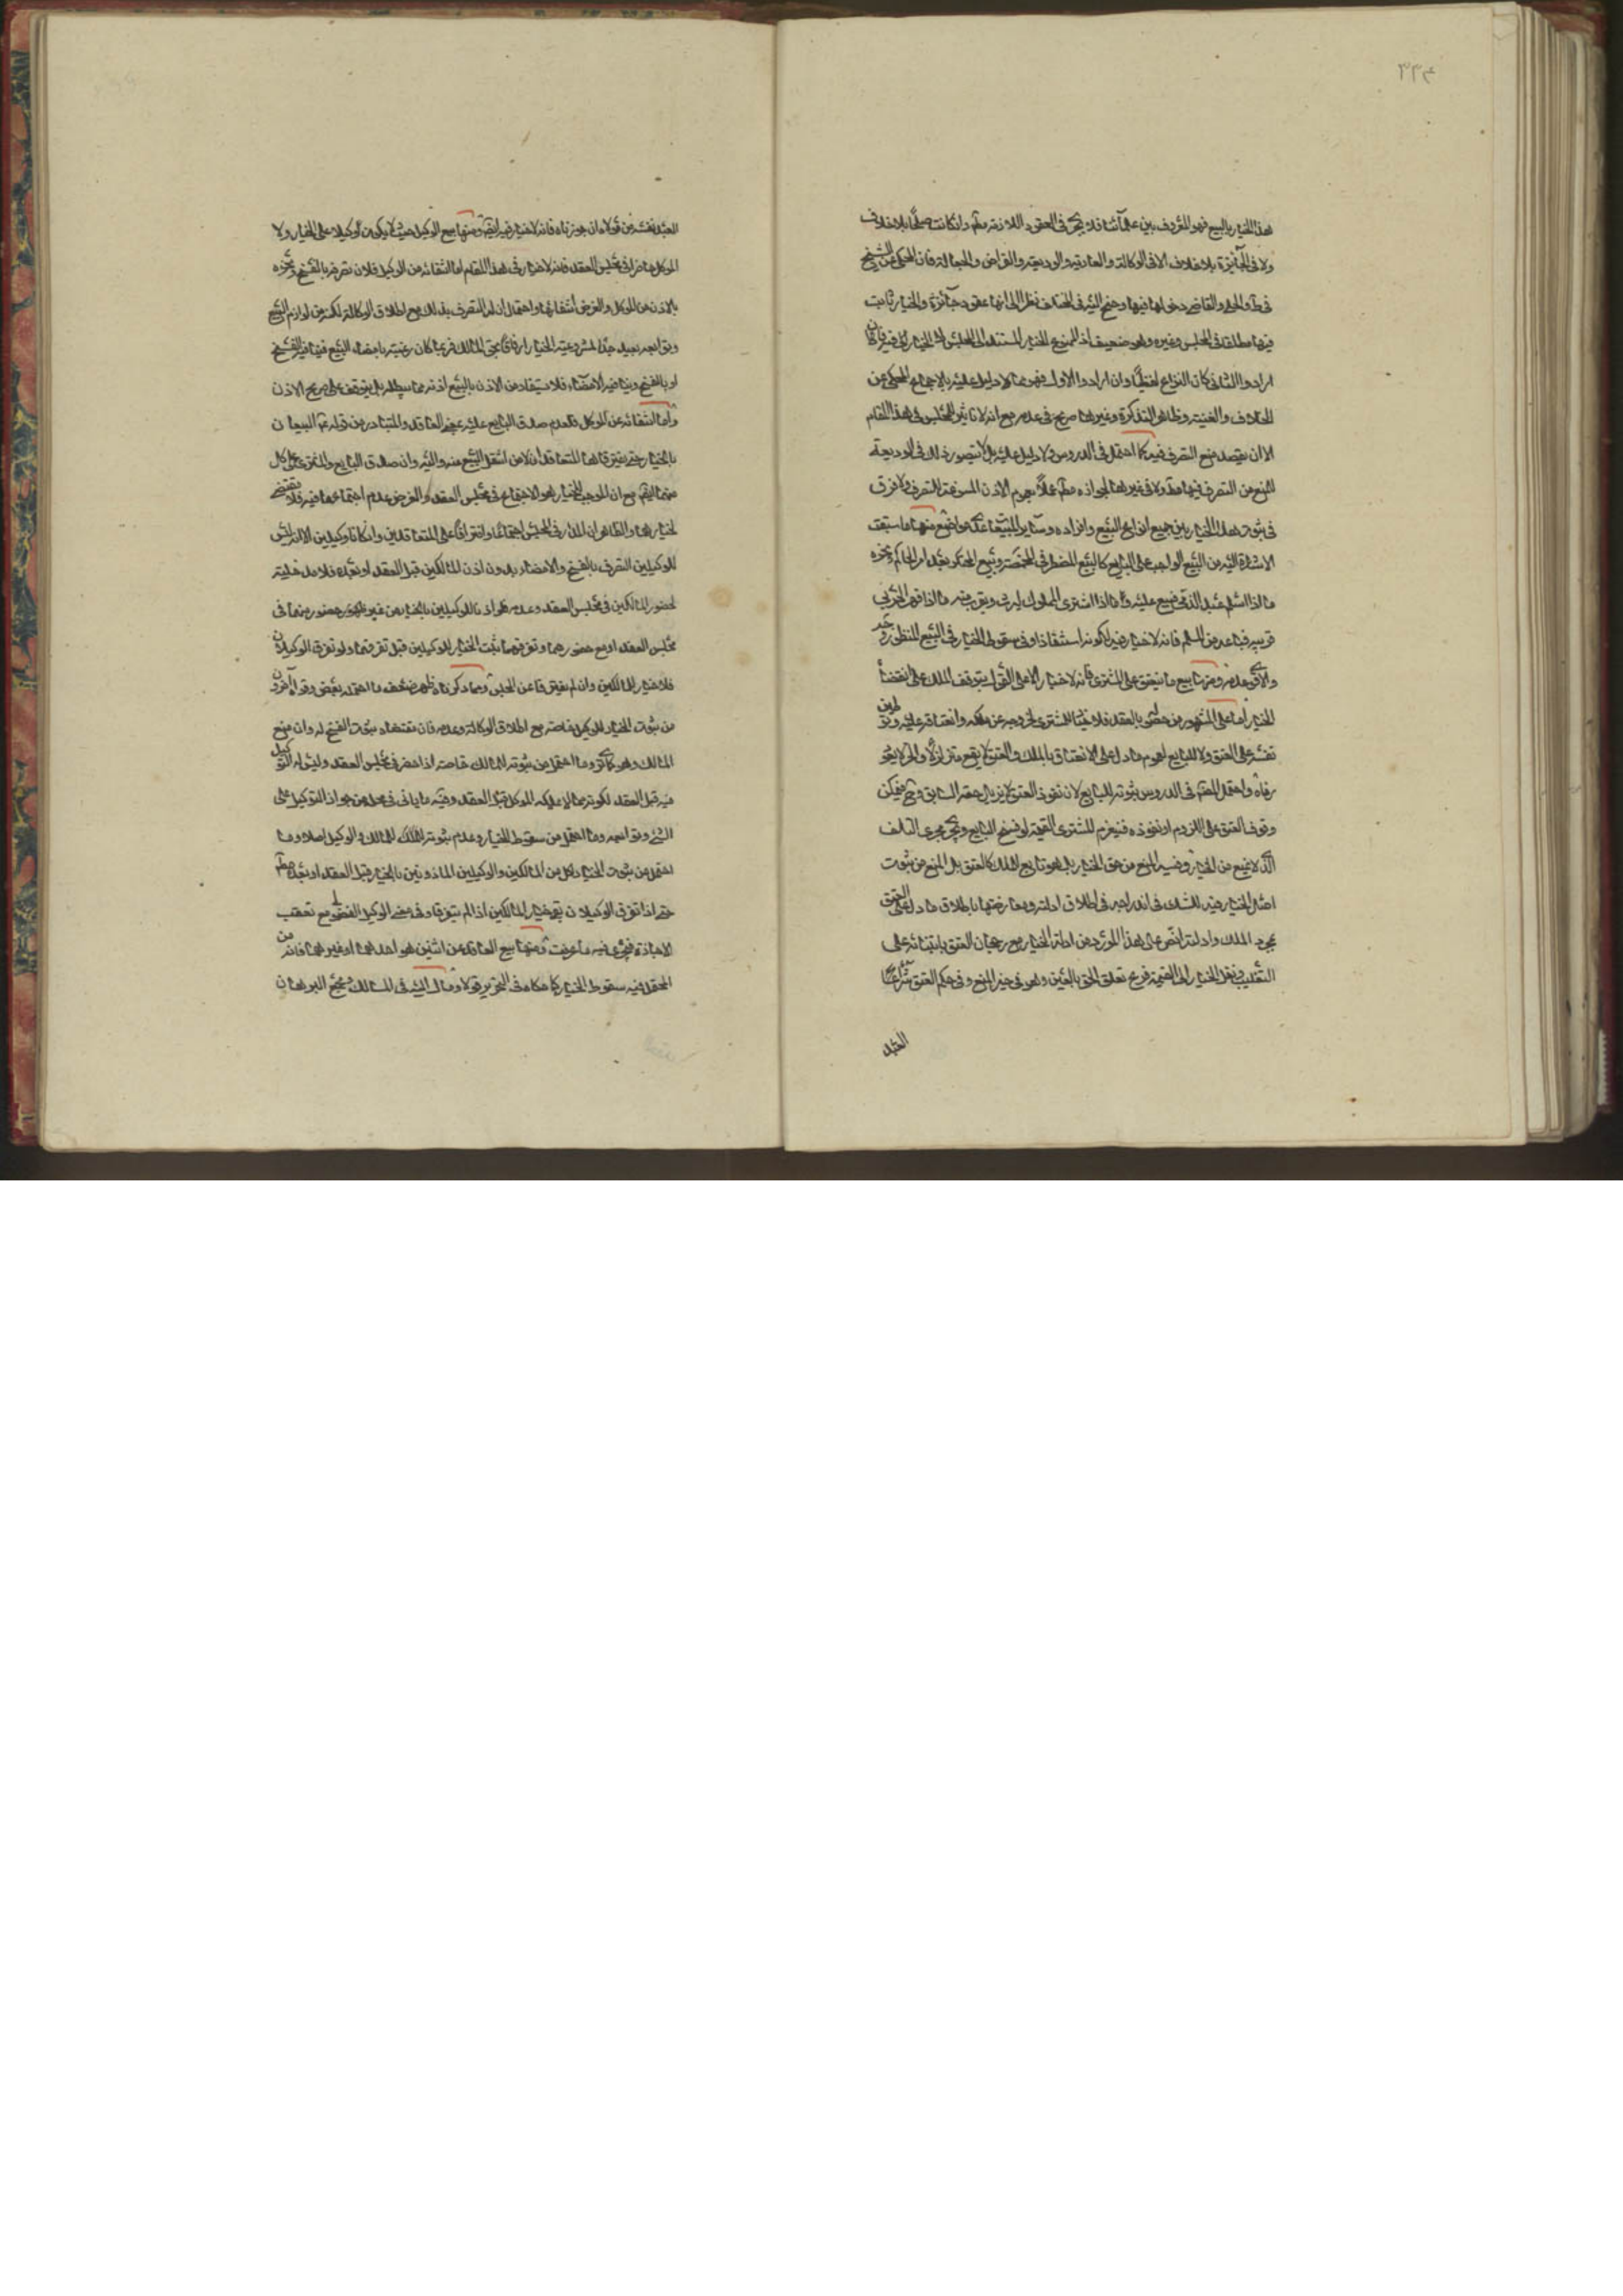 ٣٣٤
هذا الخيار بالبيع فهو المعروف بين علمائنا فلا يجرى فى العقود اللازمة مطم وانكانت صلحا بلا خلاف
ولا فى الجائزة بلا خلاف الا فى الوكالة والعارية والوديعة والقراض والجعالة فان المحكى عن الشيخ
فى ط والحلى والقاضى دخولها فيها وجنح اليه فى المختلف نظرا الى انها عقود جائزة والخيار ثابت
فيها مطلقا فى المجلس وغيره وهو ضعيف اذ الممنوع الخيار المستند الى المجلس لا الخيار فان
ارادوا الثانى كان النزاع لفظيا وان ارادوا الاول فهو مما لا دليل عليه بل الاجماع المحكى عن
الخلاف والغنية وظاهر التذكرة وغيرها صريح فى عدمه مع انه لا تاثير للمجلس فى هذا المقام
الا ان يقصد منع التصرف فيه كما احتمل فى الدروس ولا دليل عليه بل لا يتصور ذلك فى الوديعة
للمنع من التصرف فيها مطم ولا فى غيرها لجوازه مطم عملا بعموم الاذن المسوغة للتصرف ولا فرق
فى ثبوت هذا الخيار بين جميع انواع البيع وافراده وساير المبيعات عدى مواضع منها ما سبقت
الاشارة اليه من البيع الواجب على البايع كالبيع للمضطر فى المخمصة وبيع المحتكر بعد امر الحاكم ونحوه
ما اذا اسلم عبد الذمى فبيع عليه وما اذا اشترى المملوك ليرث ويقرب منه ما اذا قهر الحربى
قريبه فباعه من المسلم فانه لا خيار فيه لكونه استنقاذا وفى سقوط الخيار فى البيع المنظور وجه
والاقوى عدمه ومنها بيع ما ينعتق على المشترى فانه لا خيار الا على القول بتوقف الملك على انقضاء
الخيار اما على المشهور من حصوله بالعقد فلا خيار للمشترى لخروجه عن ملكه وانعتاقه عليه
نفسه على العتق ولا للبايع لعموم ما دل على الانعتاق بالملك والعتق لا يقع متزلزلا والحر لا يعود
رقا واحتمل فى الدروس ثبوته للبايع لان نفوذ العتق لا يزيل حقه السابق وح فيمكن
وقوف العتق على اللزوم او نفوذه فيغرم المشترى القيمة لو فسخ البايع ويجرى مجرى التالف
الذى لا يمنع من الخيار وفيه المنع من حق الخيار بل هو تابع للملك كالعتق بل المنع من ثبوت
اصل الخيار فيه للشك فى اندراجه فى اطلاق ادلته ومعارضتها باطلاق ما دل على العتق
بمجرد الملك وادلته انص على هذا المورد من ادلة الخيار مع رجحان العتق بابتنائه على
التغليب ونقل الخيار الى القيمة فرع تعلق الحق بالعين وهو فى حيز المنع وفى حكم العتق شراء
العبد
العبد نفسه من مولاه ان جوزناه فانه لا خيار فيه ومنها بيع الوكيل حيث لا يكون وكيلا على الخيار ولا
الموكل حاضرا فى مجلس العقد فانه لا خيار فى هذا المقام اما انتفائه من الوكيل فلان تصرفه بالفسخ ونحوه
بالاذن من الموكل والفرض انتفائها واحتمال ان له التصرف بذلك مع اطلاق الوكالة لكونه من لوازم البيع
وتوابعه بعيد جدا لمشروعية الخيار ارفاقا بحق المالك فربما كان رغبته بامضاء البيع فينافيه الفسخ
او بالفسخ وينافيه الامضاء فلا يستفاد من الاذن بالبيع اذنه بما يبطله بل يتوقف على صريح الاذن
واما انتفائه عن الموكل فلعدم صدق البايع عليه بمعنى العاقد والمتبادر من قوله ع البيعان
بالخيار حتى يفترقا هما المتعاقدان لا من انتقل البيع منه واليه وان صدق البايع والمشترى على كل
منهما مع ان الموجب للخيار هو الاجتماع فى مجلس العقد والفرض عدم اجتماعهما فيه فلا يقتضى
لخيارهما والظاهر ان المدار فى المجلس اجتماعا وافتراقا على المتعاقدين وان كانا وكيلين الا انه ليس
للوكيلين التصرف بالفسخ والامضاء بدون اذن المالكين قبل العقد او بعده فلا مدخلية
لحضور المالكين فى مجلس العقد وعدمه فلو اذنا للوكيلين بالخيار من غير حضور منهما فى
مجلس العقد او مع حضورهما وتفرقهما ثبت الخيار للوكيلين قبل تفرقهما ولو تفرق الوكيلان
فلا خيار للمالكين وان لم يفترقا عن المجلس ومما ذكرناه ظهر ضعف ما احتمله بعض وقواه آخرون
من ثبوت الخيار للوكيل خاصة مع اطلاق الوكالة وعدمه فان مقتضاه ثبوت الفسخ له وان منع
المالك وهو كما ترى وما احتمل من ثبوته للمالك خاصة اذا حضر فى مجلس العقد وليس له التوكيل
فيه قبل العقد لكونه مما لا يملكه الموكل قبل العقد وفيه ما ياتى فى محله من جواز التوكيل على
الشئ وتوابعه وما احتمل من سقوط الخيار وعدم ثبوته للمالك والوكيل اصلا وما
احتمل من ثبوت الخيار لكل من المالكين والوكيلين الماذونين بالخيار قبل العقد او بعده مطم
حتى اذا تفرق الوكيلان بقى خيار المالكين اذا لم يتفرقا وفى معنى الوكيل الفضولى مع تعقب
الاجازة فيجرى فيه ما عرفت ومنها بيع العاقد عن اثنين هو احدهما او غيرهما فانه من
المحتمل فيه سقوط الخيار كما حكاه فى التحرير قولا ومال اليه فى المسالك ومجمع البرهان